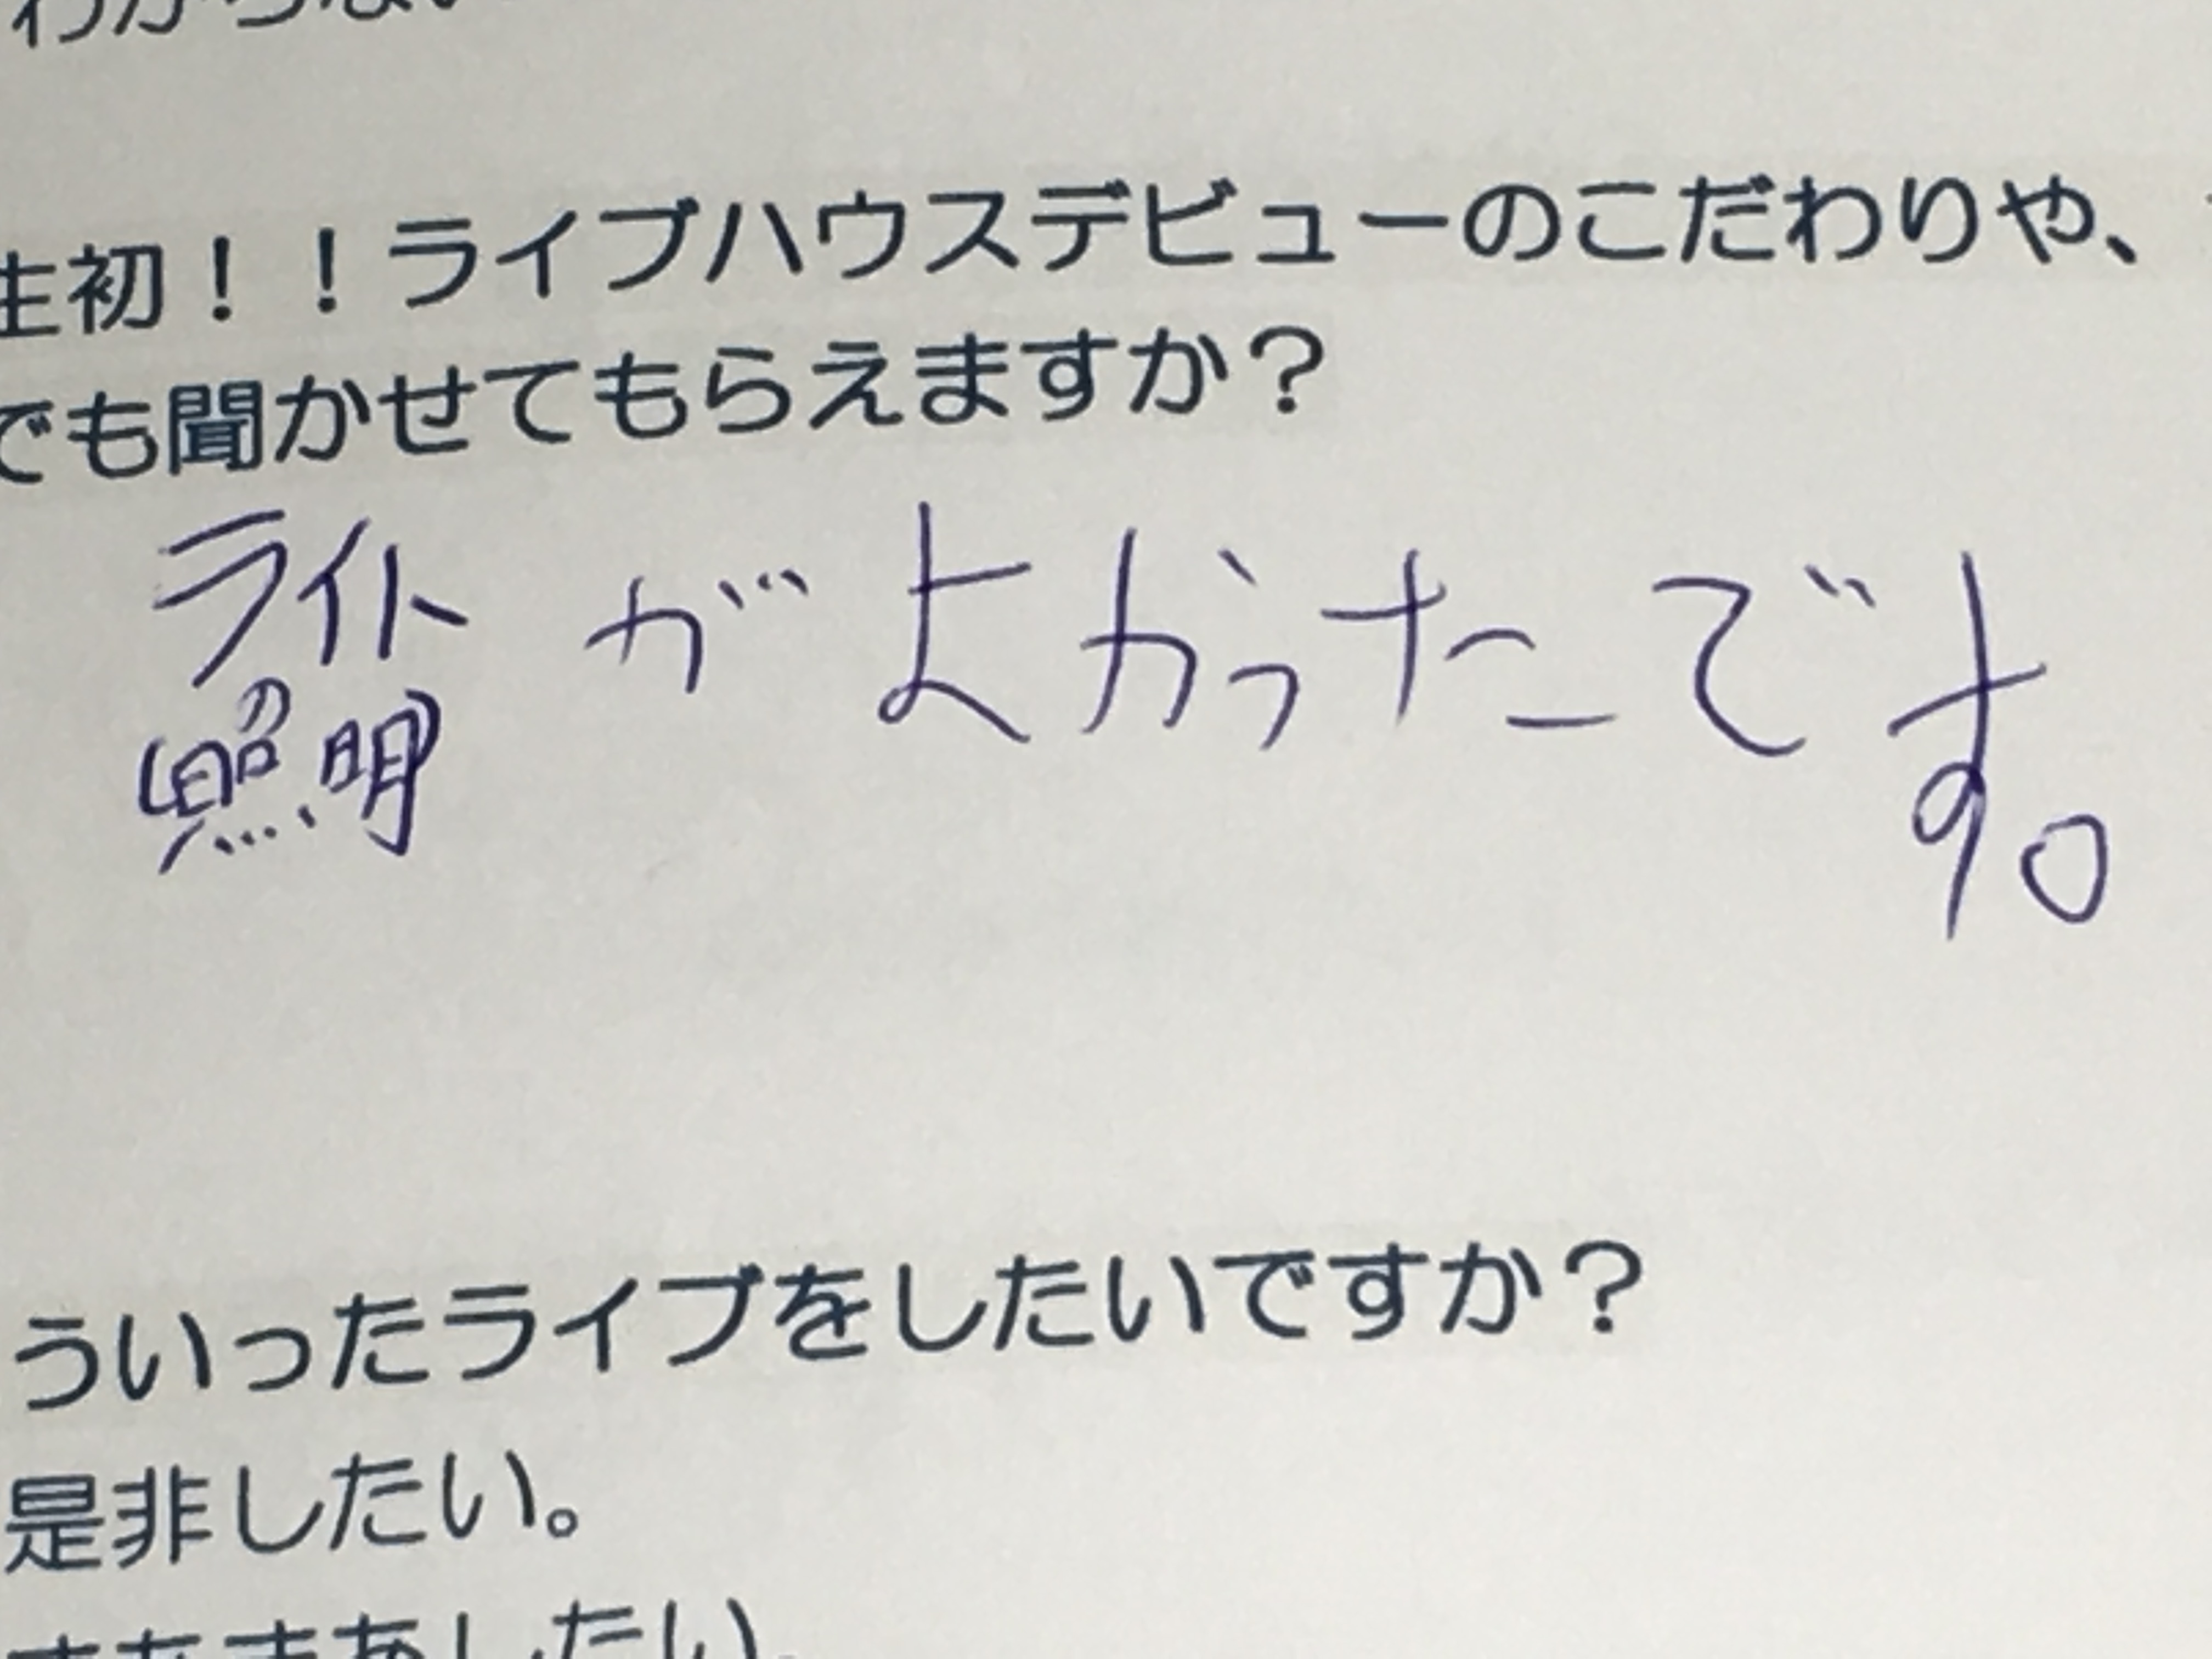 わからない
生初！！ライブハウスデビューのこだわりや、
でも聞かせてもらえますか？
ライトがよかったです。
の
(照明)
ういったライブをしたいですか？
是非したい。
まあまあしたい